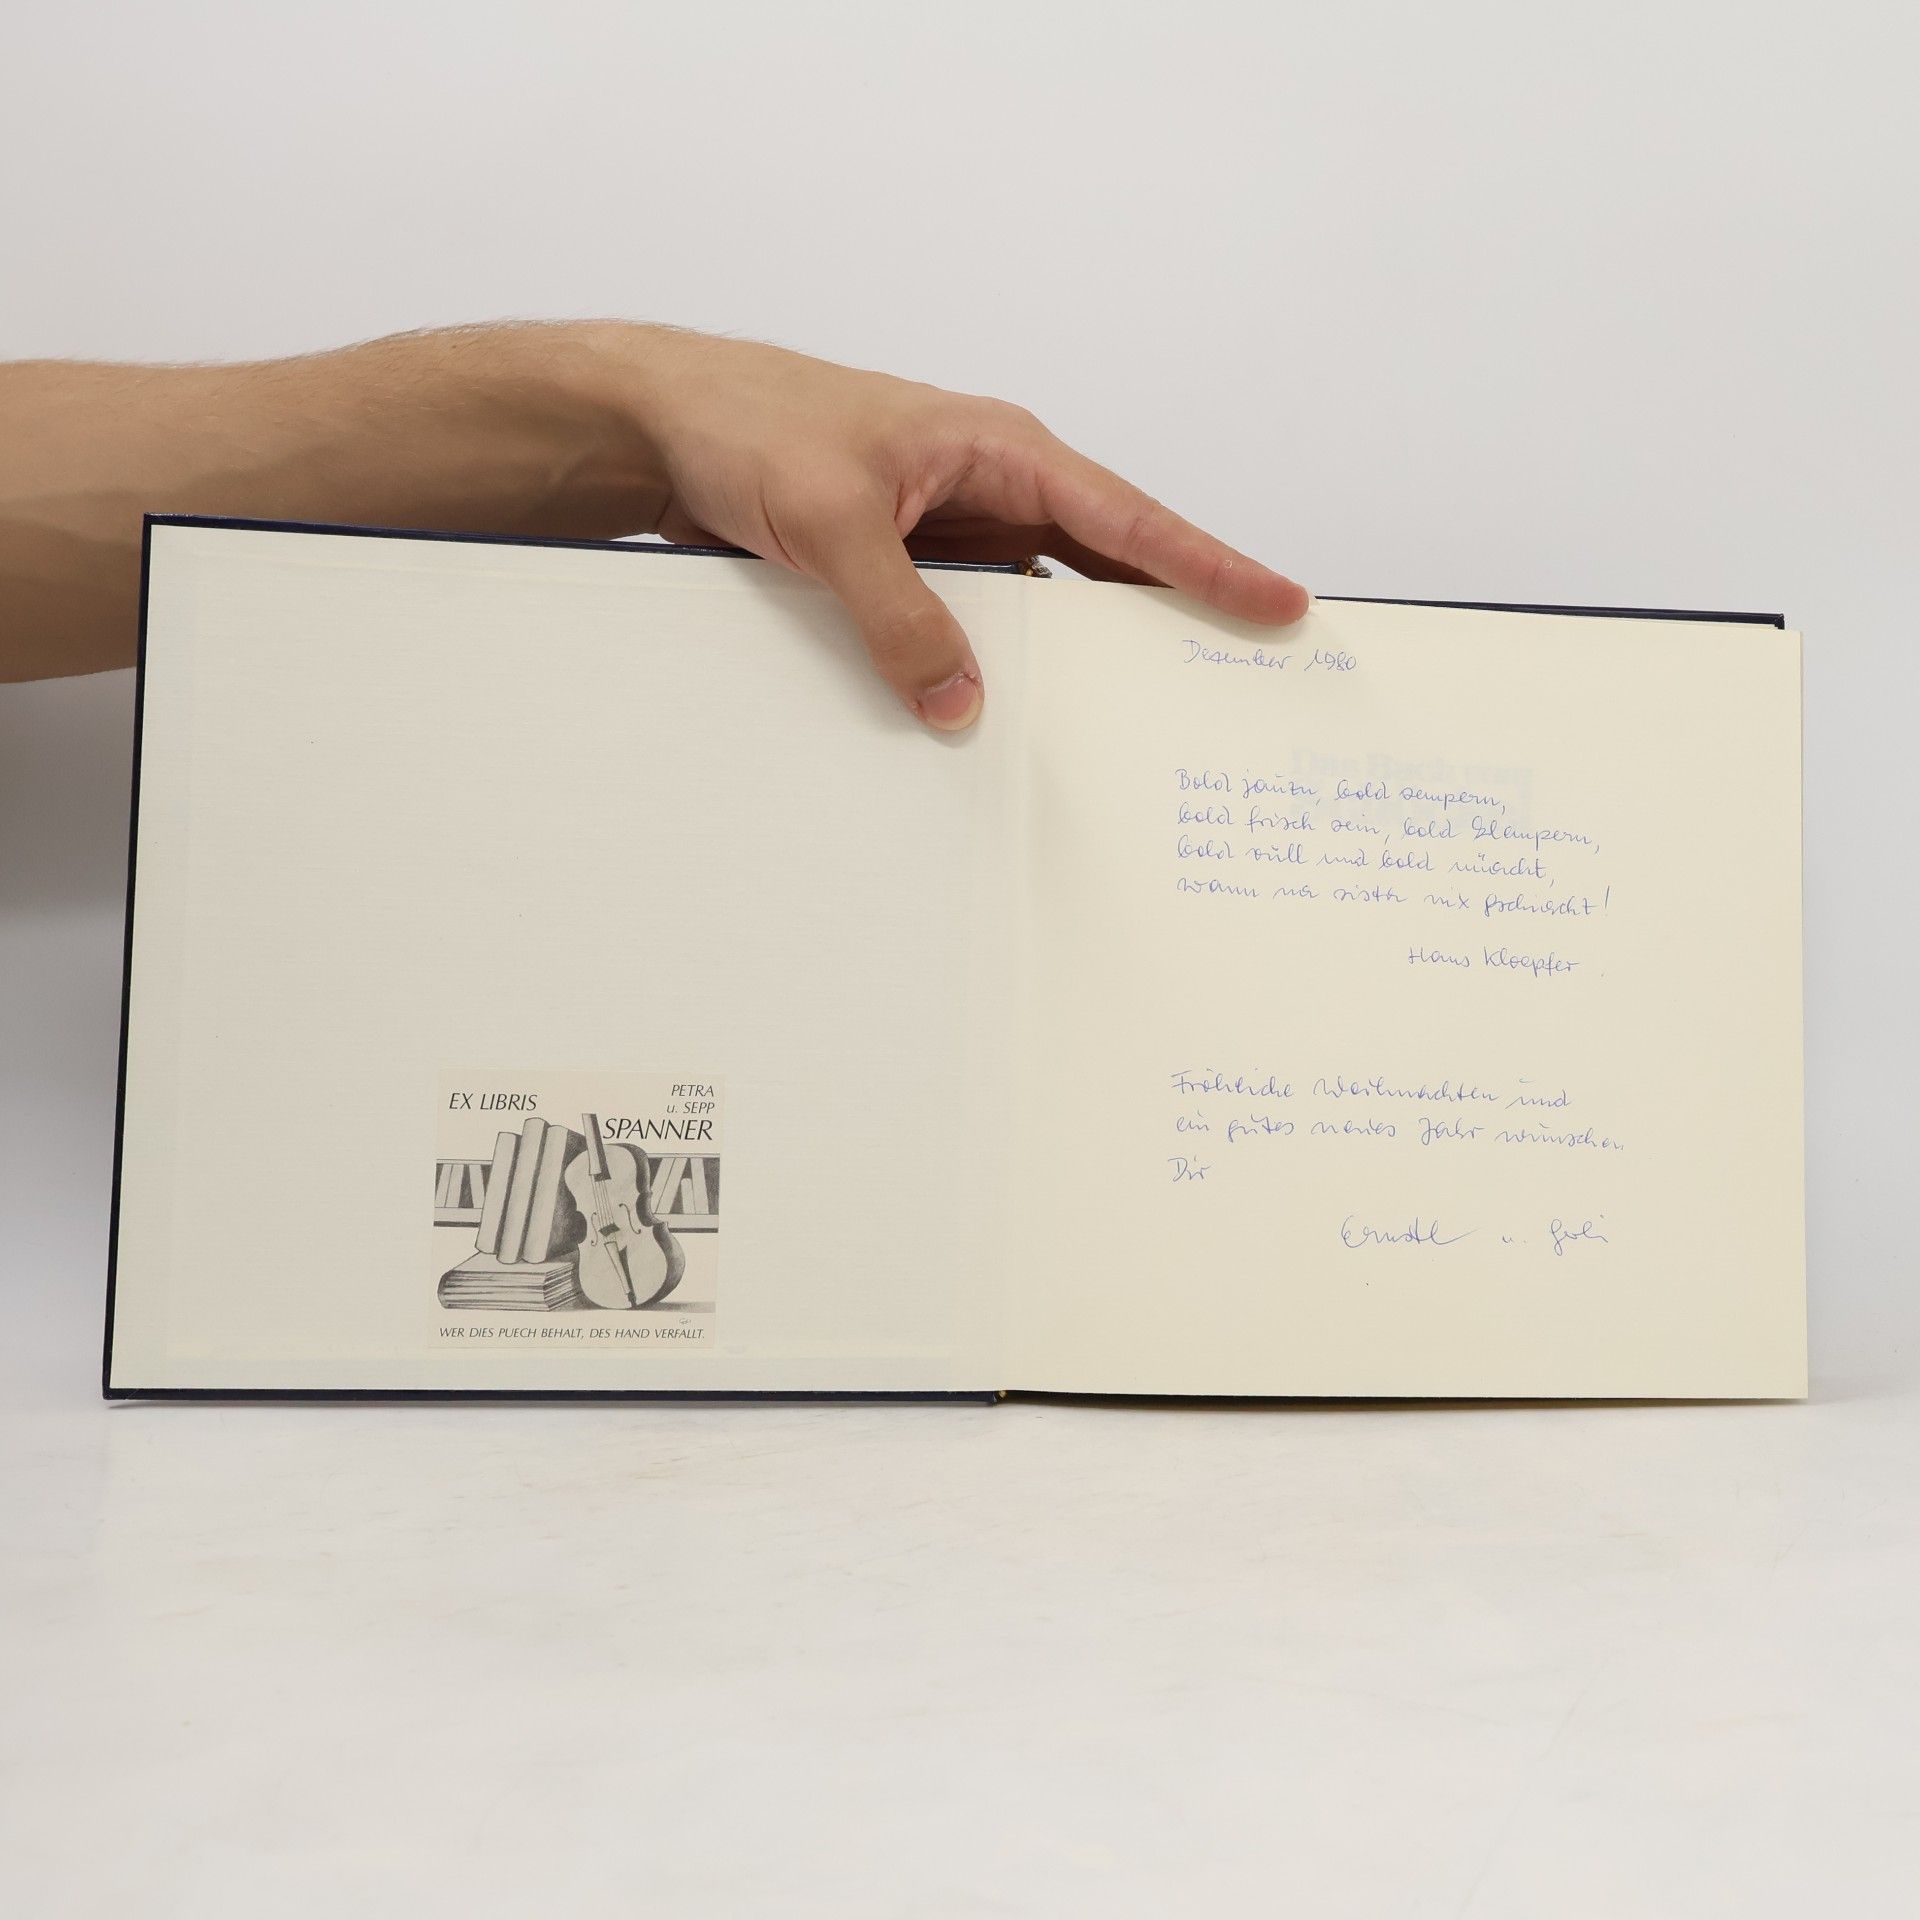 EX LIBRIS
PETRA
u. SEPP
SPANNER
WER DIES PUECH BEHALT, DES HAND VERFALLT.
Dezember 1980
Bold jauzn, bold sempern,
bold frisch sein, bold klempern,
bold sull und bold müacht,
wann na sista nix gschiacht!
Hans Kloepfer
Fröhliche Weihnachten und
ein gutes neues Jahr wünschen
Dir
Ernstl u. Gerli